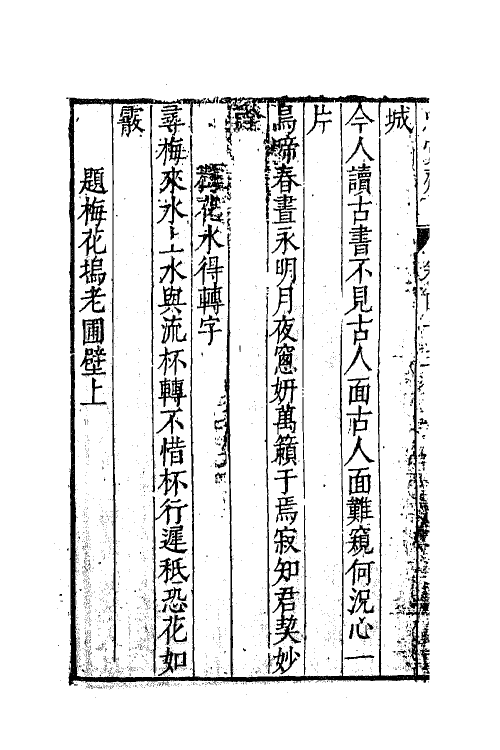 城
今人讀古書不見古人面古人面難窺何況心一
片
鳥啼春晝永明月夜窓妍萬籟于焉寂知君契妙
花水得轉字
尋梅來水上水與流杯轉不惜杯行遲秖恐花如
霰
題梅花塢老圃壁上